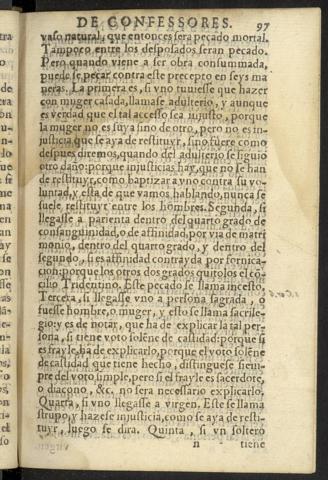 DE CONFESSORES. 97
vaso natural, que entonces sera pecado mortal.
Tampoco entre los desposados seran pecado.
Pero quando viene a ser obra consummada,
puede se pecar contra este precepto en seys ma
neras. La primera es, si vno tuuiesse que hazer
con muger casada, llamase adulterio, y aunque
es verdad que el tal accesso sea injusto, porque
la muger no es suya sino de otro, pero no es in-
justicia que se aya de restituyr, sino fuere como
despues diremos, quando del adulterio se siguio
otro daño: porque injusticias hay, que no se han
de restituyr, como baptizar a vno contra su vo-
luntad, y esta de que vamos hablando, nunca se
suele restituyr entre los hombres. Segunda, si
llegasse a parienta dentro del quarto grado de
consanguinidad, o de affinidad, por via de matri
monio, dentro del quarto grado, y dentro del
segundo, si es affinidad contrayda por fornica-
cion: porque los otros dos grados quitolos el cõ
cilio Tridentino. Este pecado se llama incesto.
Tercera, si llegasse vno a persona sagrada, o
fuesse hombre, o muger, y esto se llama sacrile-
gio: y es de notar, que ha de explicar la tal per-
sona, si tiene voto solẽne de castidad: porque si
es frayle, ha de explicarlo, porque el voto solẽne
de castidad que tiene hecho, distinguese siem-
pre del voto simple, pero si el frayle es sacerdote,
o diacono, &c. no sera necessario explicarlo.
Quarta, si vno llegasse a virgen. Este se llama
strupo, y hazese injusticia, como se aya de resti-
tuyr, luego se dira. Quinta, si vn soltero
n tiene